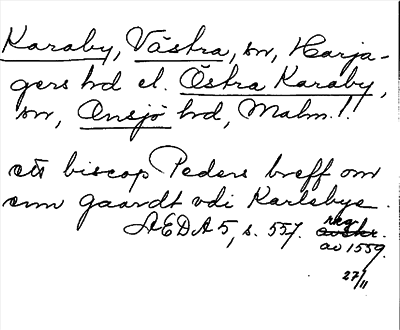 Karaby, Västra, sn, Harja-
gers hd el. Östra Karaby,
sn, Onsjö hd, Malm. l.
ett biscop Peders breff om
enn gaardt vdi Karlebye.
ÆDA 5, s. 557. reg.
av 1559.
27/11